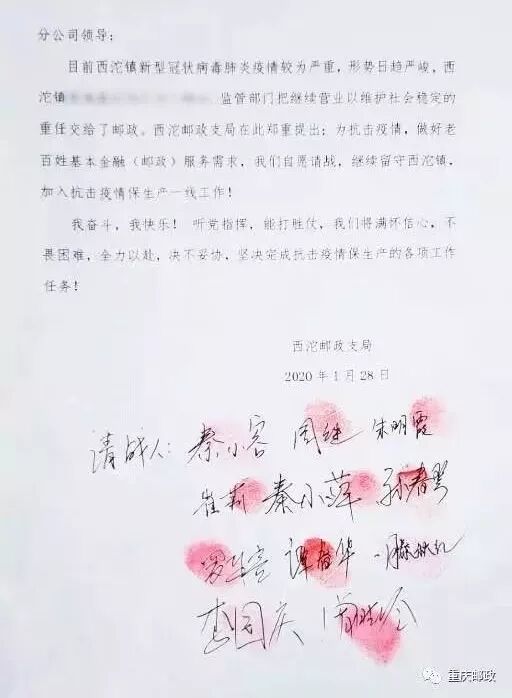 分公司领导：
目前西沱镇新型冠状病毒肺炎疫情较为严重，形势日趋严峻，西
沱镇 监管部门把继续营业以维护社会稳定的
重任交给了邮政。西沱邮政支局在此郑重提出：为抗击疫情，做好老
百姓基本金融（邮政）服务需求，我们自愿请战，继续留守西沱镇，
加入抗击疫情保生产一线工作！
我奋斗，我快乐！ 听党指挥，能打胜仗，我们将满怀信心，不
畏困难，全力以赴，决不妥协，坚决完成抗击疫情保生产的各项工作
任务！
西沱邮政支局
2020 年 1 月 28 日
请战人： 秦小容 周继 朱明霞
崔莉 秦小萍 孙春
谭 华
李国庆
重庆邮政